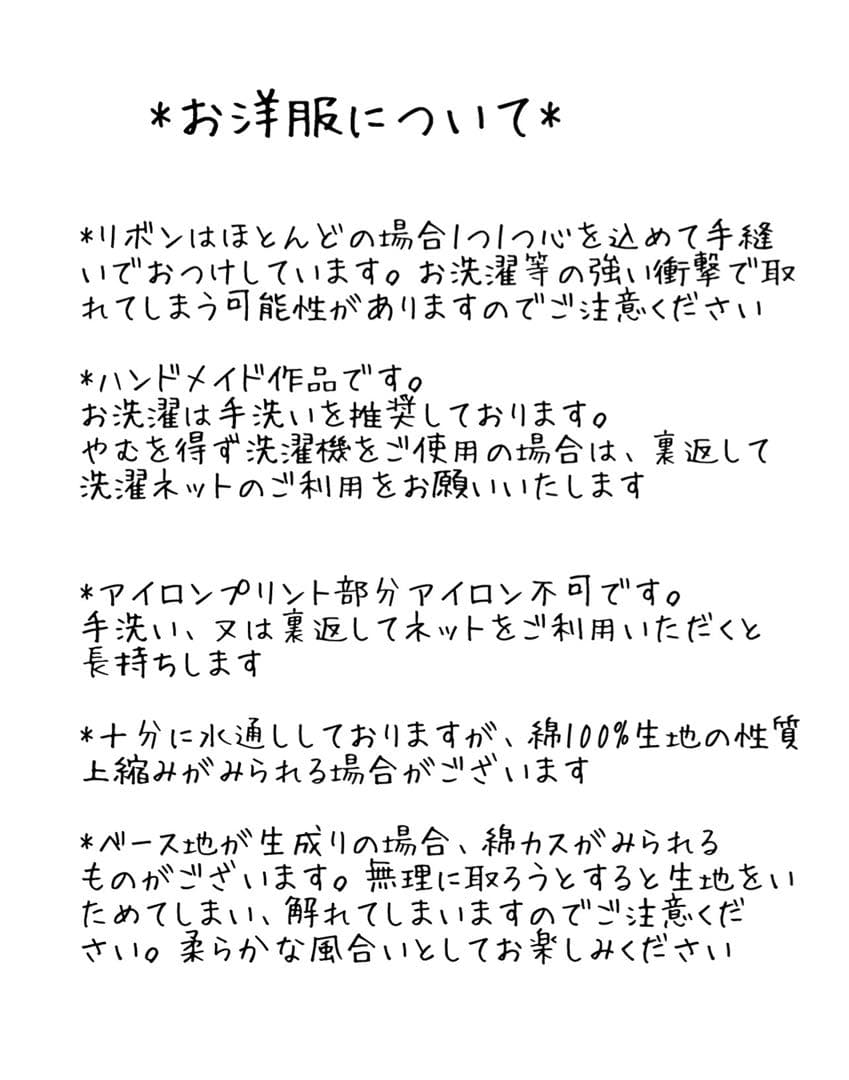 *お洋服について*
*リボンはほとんどの場合1つ1つ心を込めて手縫
いでおつけしています。お洗濯等の強い衝撃で取
れてしまう可能性がありますのでご注意ください
*ハンドメイド作品です。
お洗濯は手洗いを推奨しております。
やむを得ず洗濯機をご使用の場合は、裏返して
洗濯ネットのご利用をお願いいたします
*アイロンプリント部分アイロン不可です。
手洗い、又は裏返してネットをご利用いただくと
長持ちします
*十分に水通ししておりますが、綿100%生地の性質
上縮みがみられる場合がございます
*ベース地が生成りの場合、綿カスがみられる
ものがございます。無理に取ろうとすると生地をい
ためてしまい、解れてしまいますのでご注意くだ
さい。柔らかな風合いとしてお楽しみください